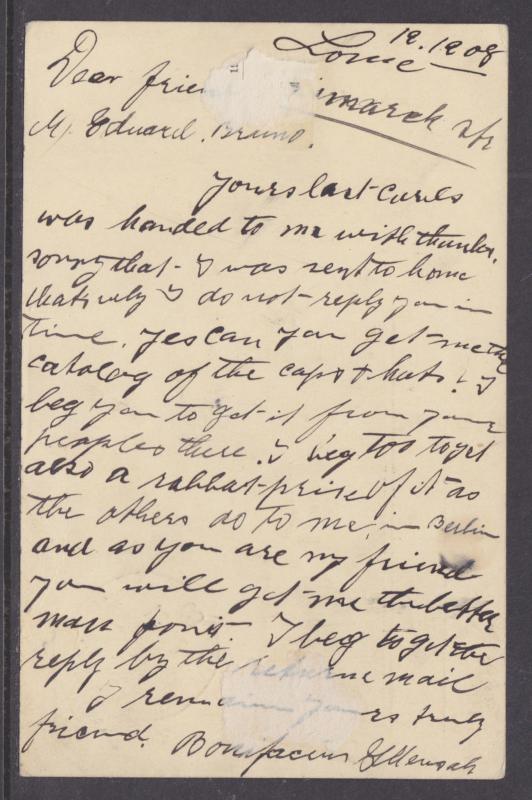 Lome 19.12.08
Dear frien Bismarck str
Mr. Eduard. Bruno.
Yours last cards
was handed to me with thanks.
sorry that I was sent to home
thats why I do not reply you in
time. Yes can you get me the
catalog of the caps & hats? I
beg you to get it from your
peoples there. I beg too to get
also a rabbat prise of it as
the others do to me, in Berlin
and as you are my friend
you will get me the better
mass I beg to get the
reply by the return mail
I remain yours truly
friend. Bonifacius Mensah